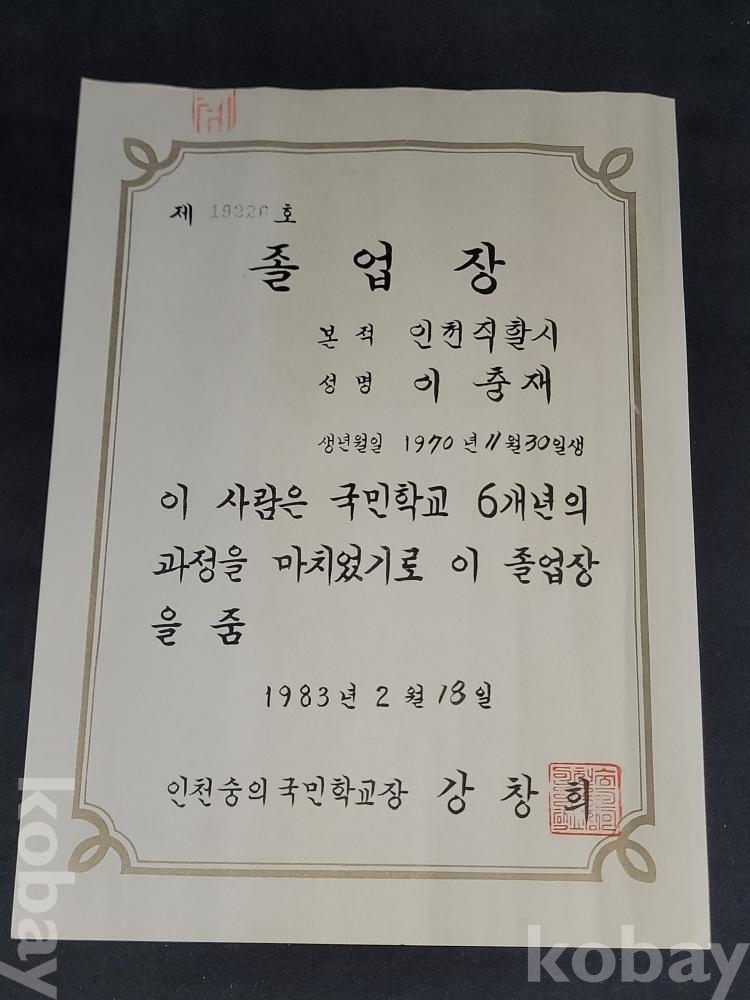 제 19226 호
졸업장
본적 인천직할시
성명 이충재
생년월일 1970년 11월 30일생
이 사람은 국민학교 6개년의
과정을 마치었기로 이 졸업장
을 줌
1983년 2월 18일
인천숭의국민학교장 강창희
kobay
kobay